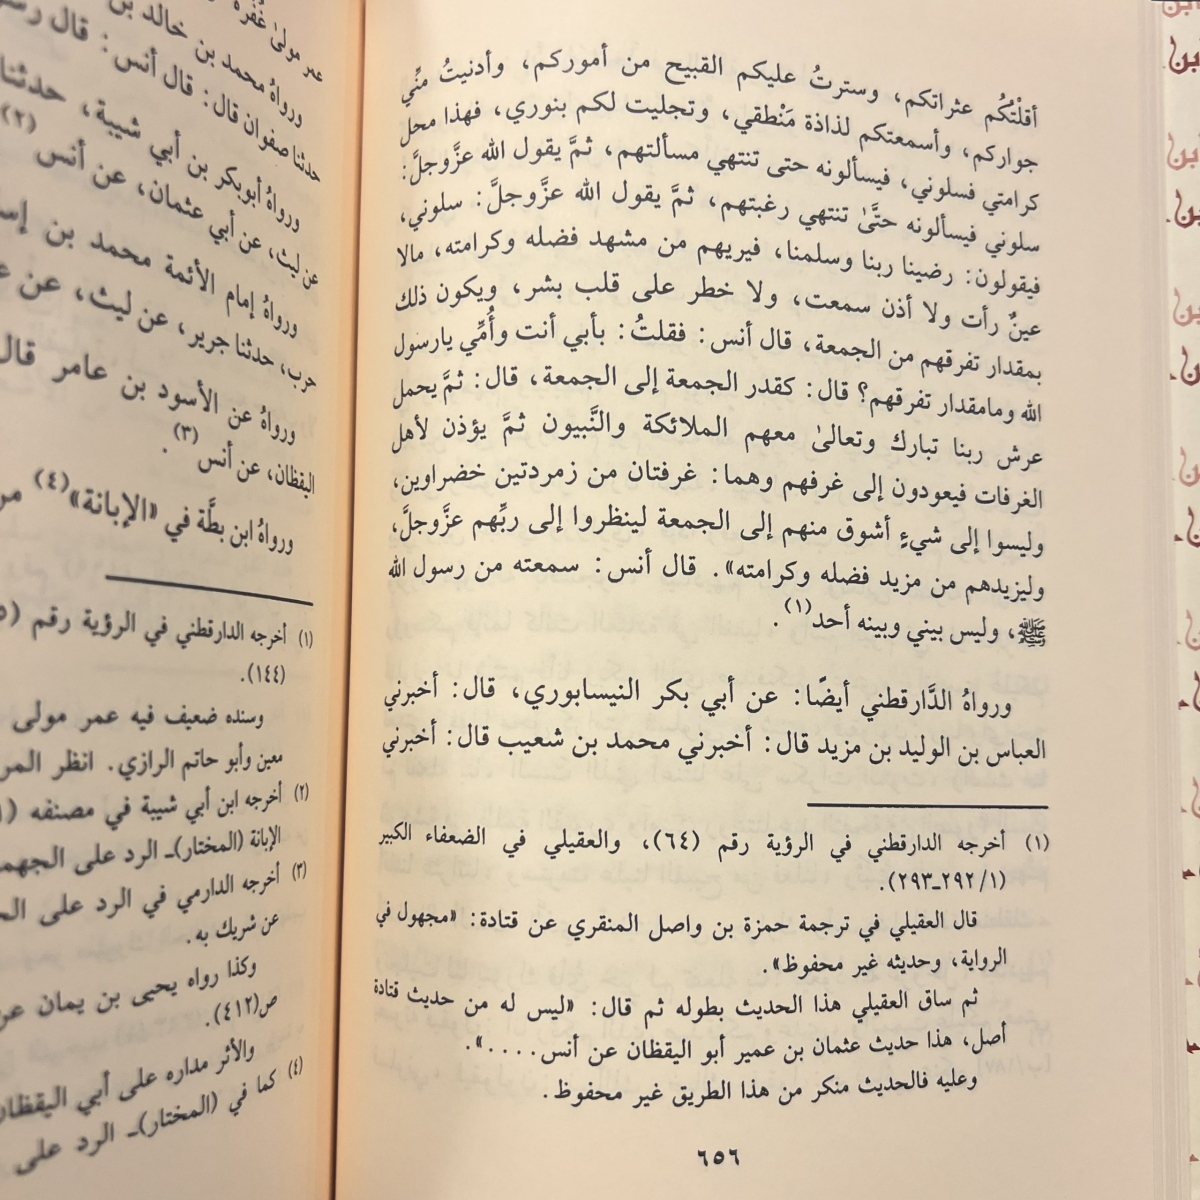 أقلْتُكُم عثراتكم، وسترتُ عليكم القبيح من أموركم، وأدنيتُ منِّي
جواركم، وأسمعتكم لذاذة مَنْطقي، وتجليت لكم بنوري، فهذا محل
كرامتي فسلوني، فيسألونه حتى تنتهي مسألتهم، ثمَّ يقول الله عزَّوجلَّ:
سلوني فيسألونه حتَّىٰ تنتهي رغبتهم، ثمَّ يقول الله عزَّوجلَّ: سلوني،
فيقولون: رضينا ربنا وسلمنا، فيريهم من مشهد فضله وكرامته، مالا
عينٌ رأت ولا أذن سمعت، ولا خطر على قلب بشر، ويكون ذلك
بمقدار تفرقهم من الجمعة، قال أنس: فقلتُ: بأبي أنت وأُمِّي يارسول
الله ومامقدار تفرقهم؟ قال: كقدر الجمعة إلى الجمعة، قال: ثمَّ يحمل
عرش ربنا تبارك وتعالىٰ معهم الملائكة والنَّبيون ثمَّ يؤذن لأهل
الغرفات فيعودون إلى غرفهم وهما: غرفتان من زمردتين خضراوين،
وليسوا إلى شيءٍ أشوق منهم إلى الجمعة لينظروا إلى ربِّهم عزَّوجلَّ،
وليزيدهم من مزيد فضله وكرامته». قال أنس: سمعته من رسول الله
ﷺ، وليس بيني وبينه أحد(١).
ورواهُ الدَّارقطني أيضًا: عن أبي بكر النيسابوري، قال: أخبرني
العباس بن الوليد بن مزيد قال: أخبرني محمد بن شعيب قال: أخبرني
(١) أخرجه الدارقطني في الرؤية رقم (٦٤)، والعقيلي في الضعفاء الكبير
(١/ ٢٩٢ـ٢٩٣).
قال العقيلي في ترجمة حمزة بن واصل المنقري عن قتادة: «مجهول في
الرواية، وحديثه غير محفوظ».
ثم ساق العقيلي هذا الحديث بطوله ثم قال: «ليس له من حديث قتادة
أصل، هذا حديث عثمان بن عمير أبو اليقظان عن أنس....».
وعليه فالحديث منكر من هذا الطريق غير محفوظ.
٦٥٦
عمر مولىٰ غُفْرة
ورواهُ محمد بن خالد بن
حدثنا صفوان قال: قال أنس: قال
ورواهُ أبوبكر بن أبي شيبة، حدثنا
عن ليث، عن أبي عثمان، عن أنس (٢)
ورواهُ إمام الأئمة محمد بن
حرب، حدثنا جرير، عن ليث، عن
ورواهُ عن الأسود بن عامر قال
اليقظان، عن أنس(٣).
ورواهُ ابن بطَّة في «الإبانة»(٤)
(١) أخرجه الدارقطني في الرؤية رقم
(١٤٤).
وسنده ضعيف فيه عمر مولى
معين وأبو حاتم الرازي. انظر
(٢) أخرجه ابن أبي شيبة في مصنفه
الإبانة (المختار)ـ الرد على
(٣) أخرجه الدارمي في الرد على
عن شريك به.
وكذا رواه يحيى بن يمان
ص(٤١٢).
والأثر مداره على أبي اليقظان
(٤) كما في (المختار)ـ الرد على